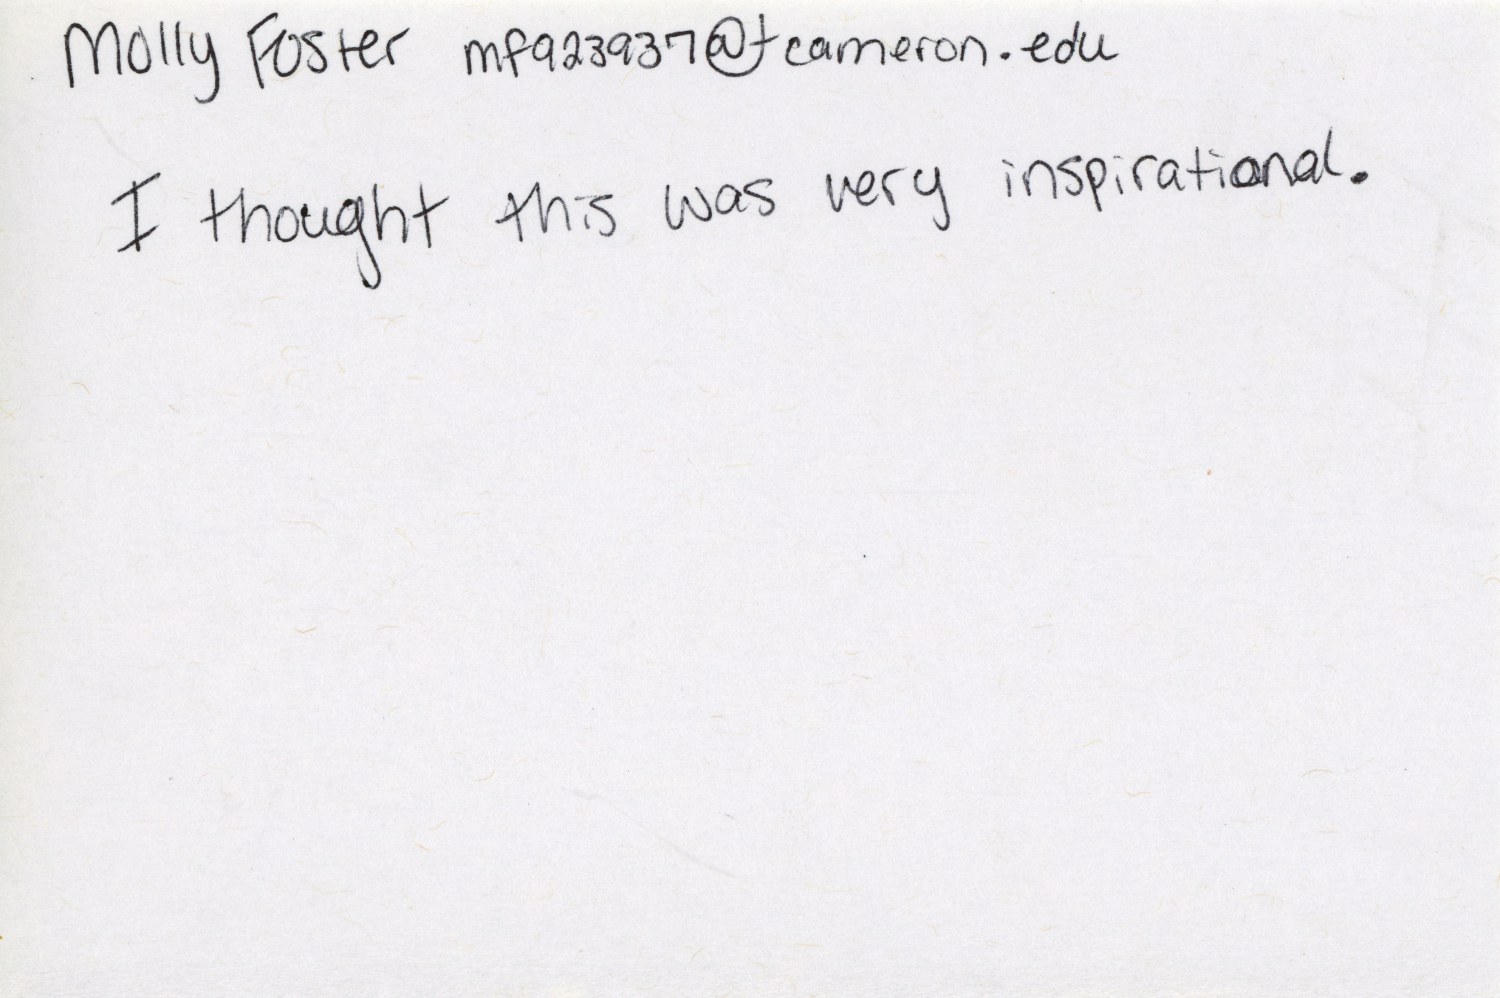 Molly Foster mf923937@tcameron.edu
I thought this was very inspirational.